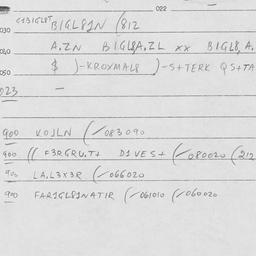 022
C13IGL8T BIGL81N (812
030
040 A.ZN BIGL8A.ZL xx BIGL8,A.
050 $ )-KROXMAL8 )-S+TERK QS+TA
023 —
900 VOJLN (/083090
900 (( F3RGRU.T+ D1VES+ (/080020 (212
900 LA.L3X3R (/066020
900 FAR1GL81NATIR (/061010 (/060020